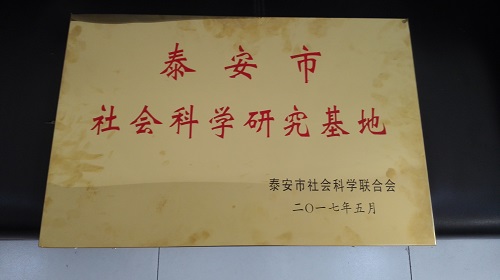 泰安市
社会科学研究基地
泰安市社会科学联合会
二〇一七年五月